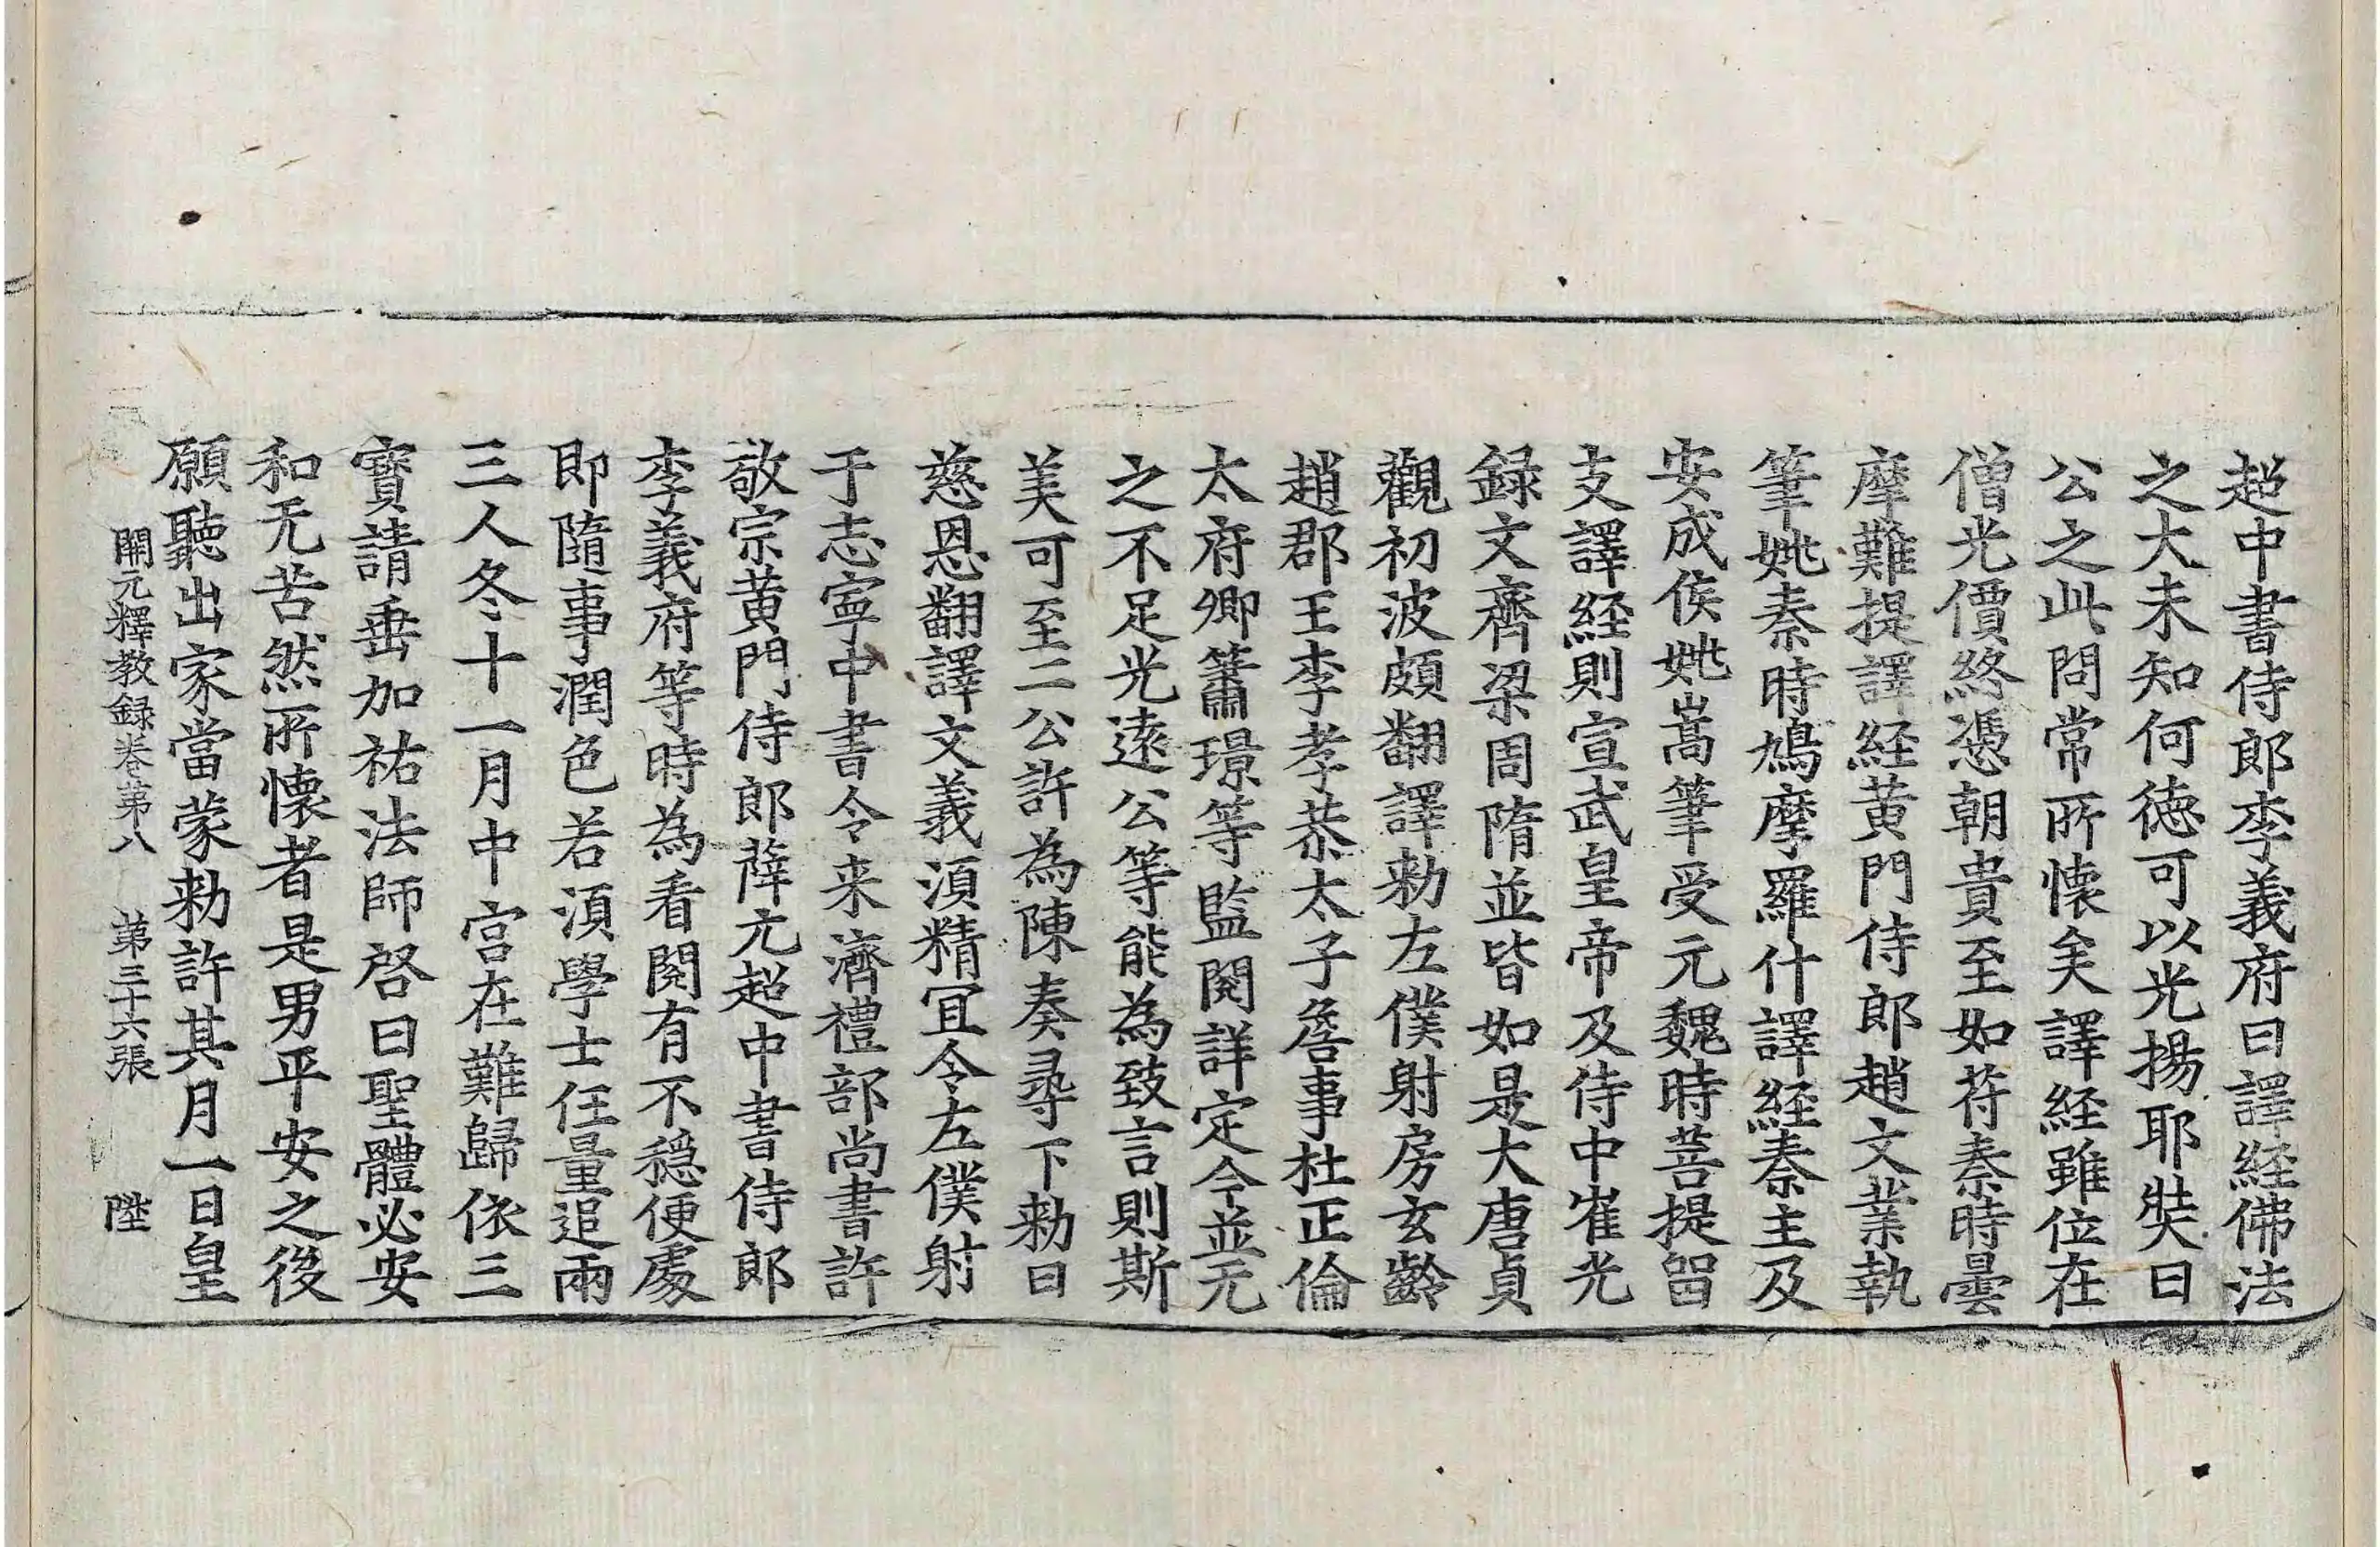 超中書侍郎李義府曰譯経佛法
之大未知何徳可以光揚耶奘曰
公之此問常所懐矣譯経雖位在
僧光價終憑朝貴至如苻秦時曇
摩難提譯経黄門侍郎趙文業執
筆姚秦時鳩摩羅什譯経秦主及
安成侯姚嵩筆受元魏時菩提留
支譯経則宣武皇帝及侍中崔光
録文齊梁周隋並皆如是大唐貞
觀初波頗翻譯勑左僕射房玄齡
趙郡王李孝恭太子詹事杜正倫
太府卿簫璟等監閱詳定今並无
之不足光遠公等能為致言則斯
美可至二公許為陳奏尋下勑曰
慈恩翻譯文義湏精冝令左僕射
于志寧中書令来濟禮部尚書許
敬宗黄門侍郎薛元超中書侍郎
李義府等時為看閱有不穏便處
即隨事潤色若湏學士任量追兩
三人冬十一月中宫在難歸依三
寶請垂加祐法師啓曰聖體必安
和无苦然所懐者是男平安之後
願聽出家當蒙勑許其月一日皇
開元釋教録卷第八 第三十六張 陞